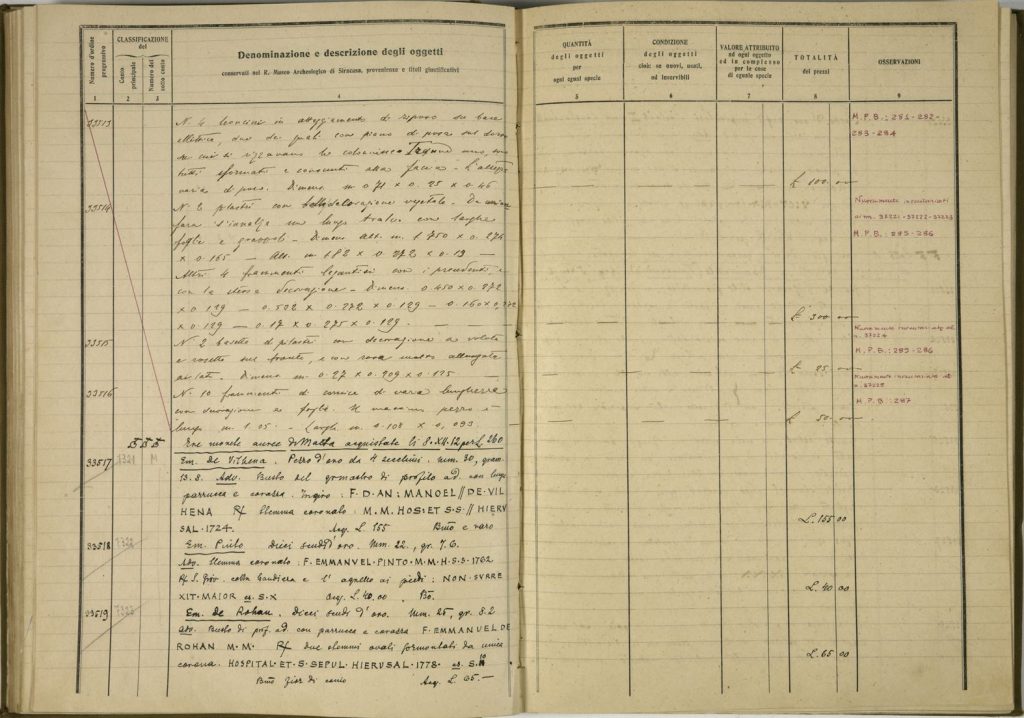 Numero d'ordine progressivo
CLASSIFICAZIONE del
Conto principale
Numero del sotto conto
Denominazione e descrizione degli oggetti
conservati nel R. Museo Archeologico di Siracusa, provenienza e titoli giustificativi
QUANTITÀ degli oggetti per ogni egual specie
CONDIZIONE degli oggetti cioè: se nuovi, usati, od inservibili
VALORE ATTRIBUITO ad ogni oggetto ed in complesso per le cose di eguale specie
TOTALITÀ dei prezzi
OSSERVAZIONI
1 2 3 4 5 6 7 8 9
33513 N. 4 leoncini in atteggiamento di riposo su base
due dei quali con piano di posa sul dorso
su cui si
tutti sformati e corrosi alla faccia - L'altezza
varia di poco. Dimens. m 0.71 x 0.25 x 0.46
£ 100.00
M.P.B.: 281-282-
283-284
33514 N. 2 pilastri con decorazione vegetale.
s'innalza un lungo tralcio con larghe
foglie e grappoli. Dimens. Alt. m. 1.750 x 0.274
x 0.165 — Alt. m. 1.82 x 0.272 x 0.19 —
Altri 4 frammenti con i precedenti e
con la stessa decorazione - Dimens. 0.450 x 0.272
x 0.129 — 0.502 x 0.272 x 0.129 — 0.160 x 0.272
x 0.129 — 0.17 x 0.275 x 0.129.
£ 300.00
Nuovamente inventariati
ai nn. 37221-37222-37223
M.P.B.: 285-286
33515 N. 2 basette di pilastri con decorazione a volute
e rosette sul fronte, e con
ai lati. Dimens. m 0.27 x 0.209 x 0.135
£ 25.00
Nuovamente inventariato al
n. 37224
M.P.B.: 285-286
33516 N. 10 frammenti di cornice di varia lunghezza
con decorazione a foglie. Il maggior pezzo è
lungo m 1.05. - Largh. m 0.108 x 0,093
£ 50.00
Nuovamente inventariato al
n. 37225
M.P.B: 287
Tre monete auree di Malta acquistate li 8.XII.12 per L. 260
33517 1321 M Em. De Vilhena. Pezzo d'oro da 4 zecchini. mm. 30, gram.
13.8. Adv. Busto del grmastro di profilo ad. con lunga
parrucca e corazza. Ingiro: F·D·AN: MANOEL // DE·VIL
HENA R/ Stemma coronato: M.M. HOS: ET S·S·// HIERV
SAL·1724. Acq. L. 155 Bmo e raro
L. 155 00
33518 1322 Em. Pinto Dieci scudi d'oro. Mm. 22, gr. 7.6.
Adv. Stemma coronato: F. EMMANVEL·PINTO·M·M·H·S·S·1762
R/ S. Giov. colla bandiera e l'agnello ai piedi: NON·SVRRE
XIT·MAIOR es. S.X Acq. L. 40.00. Bo.
L. 40 00
33519 1323 Em. De Rohan. Dieci scudi d'oro. Mm. 25, gr. 8.2
Adv. Busto di prof. ad. con parrucca e corazza F. EMMANUEL DE
ROHAN M·M· R/ due stemmi ovali sormontati da unica
corona. HOSPITAL·ET·S·SEPUL·HIERUSAL·1778· es. S. 10
Bmo Fior di conio Acq. L. 65.—
L. 65 00